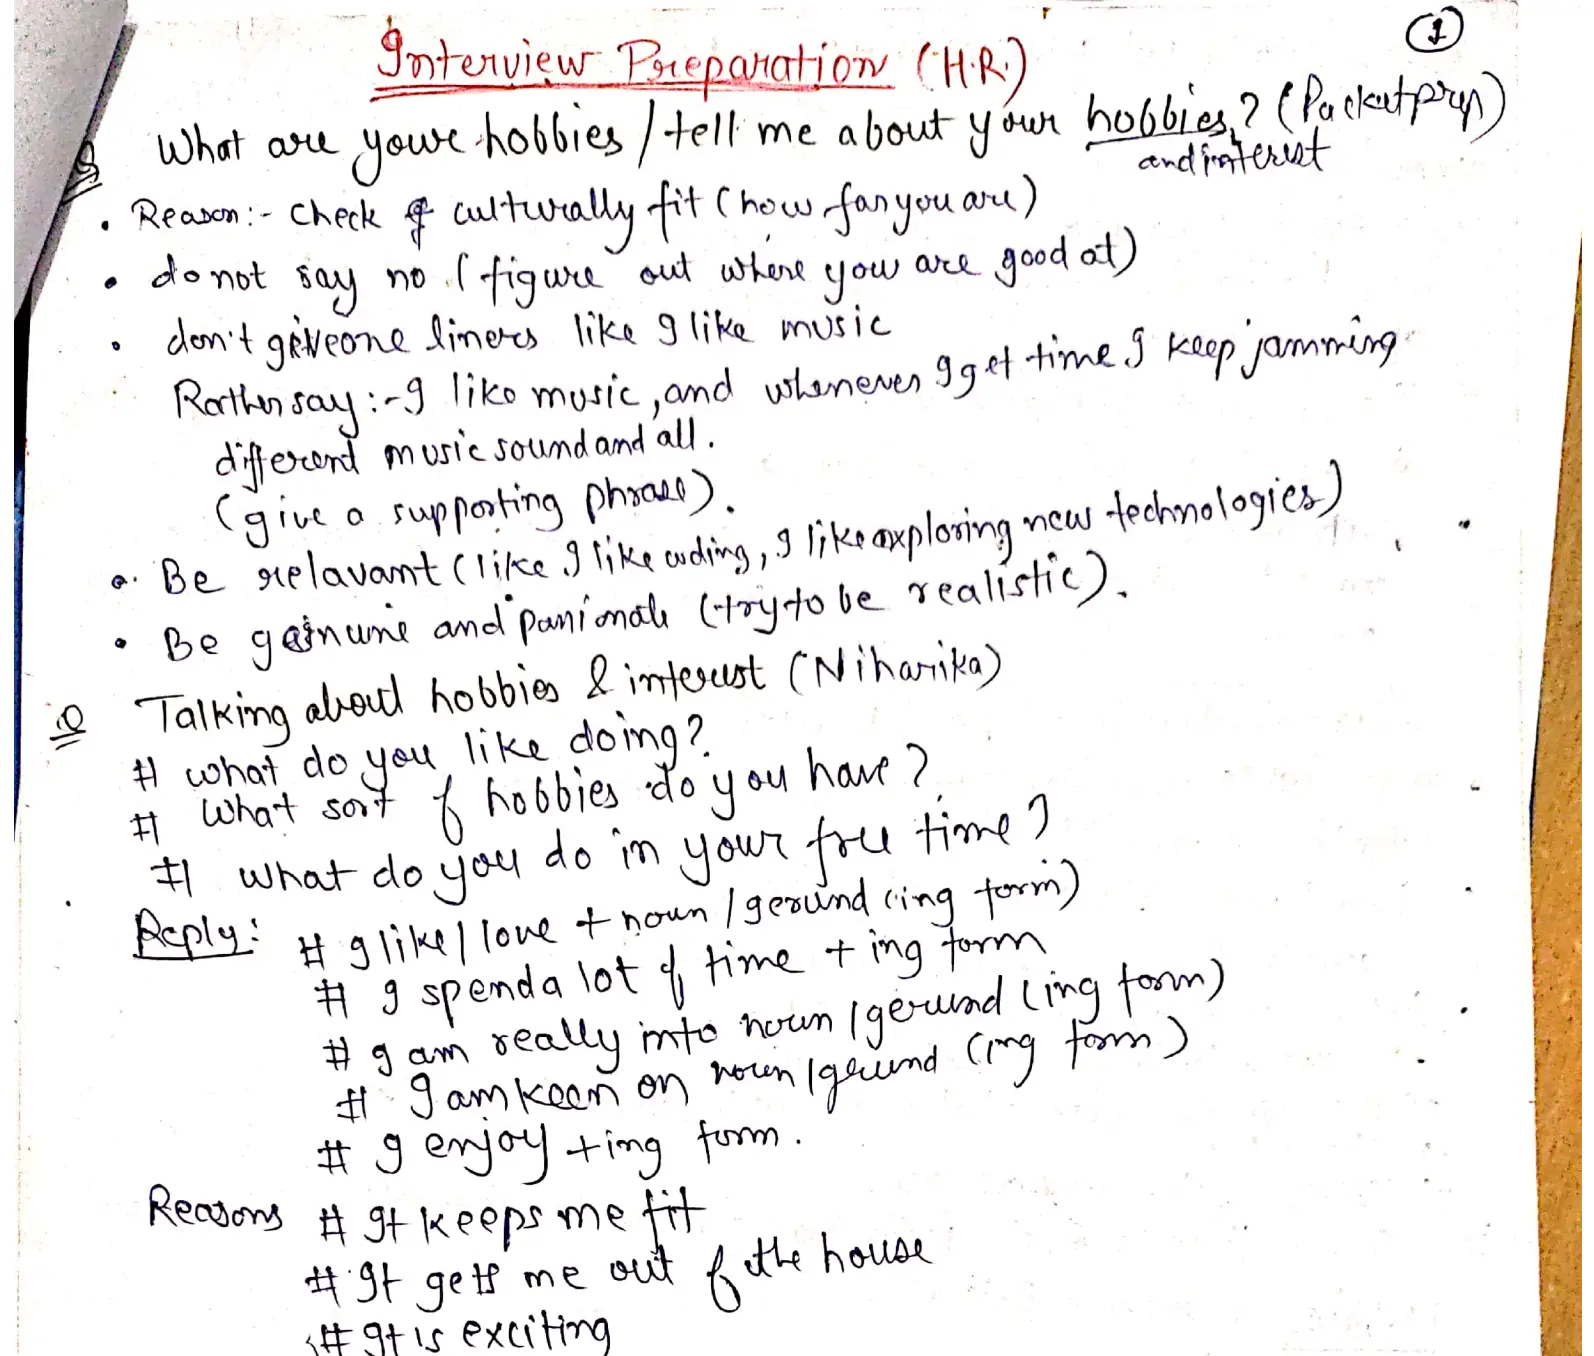 1
Interview Preparation (H.R.)
Q What are youre hobbies / tell me about your hobbies? (Packetprep)
and interest
• Reason:- Check of culturally fit (how far you are)
• do not say no (figure out where you are good at)
• don't give one liners like I like music
Rather say:- I like music, and whenever I get time I keep jamming
different music sound and all.
(give a supporting phrase).
• Be relavant (like I like coding, I like exploring new technologies)
• Be and (try to be realistic).
Q Talking about hobbies & interest (Niharika)
# what do you like doing?
# What sort of hobbies do you have?
# what do you do in your free time?
Reply: # I like / love + noun / gerund (ing form)
# I spend a lot of time + ing form
# I am really into noun / gerund (ing form)
# I am keen on noun / gerund (ing form)
# I enjoy + ing form.
Reasons # It keeps me fit
# It gets me out of the house
# It is exciting